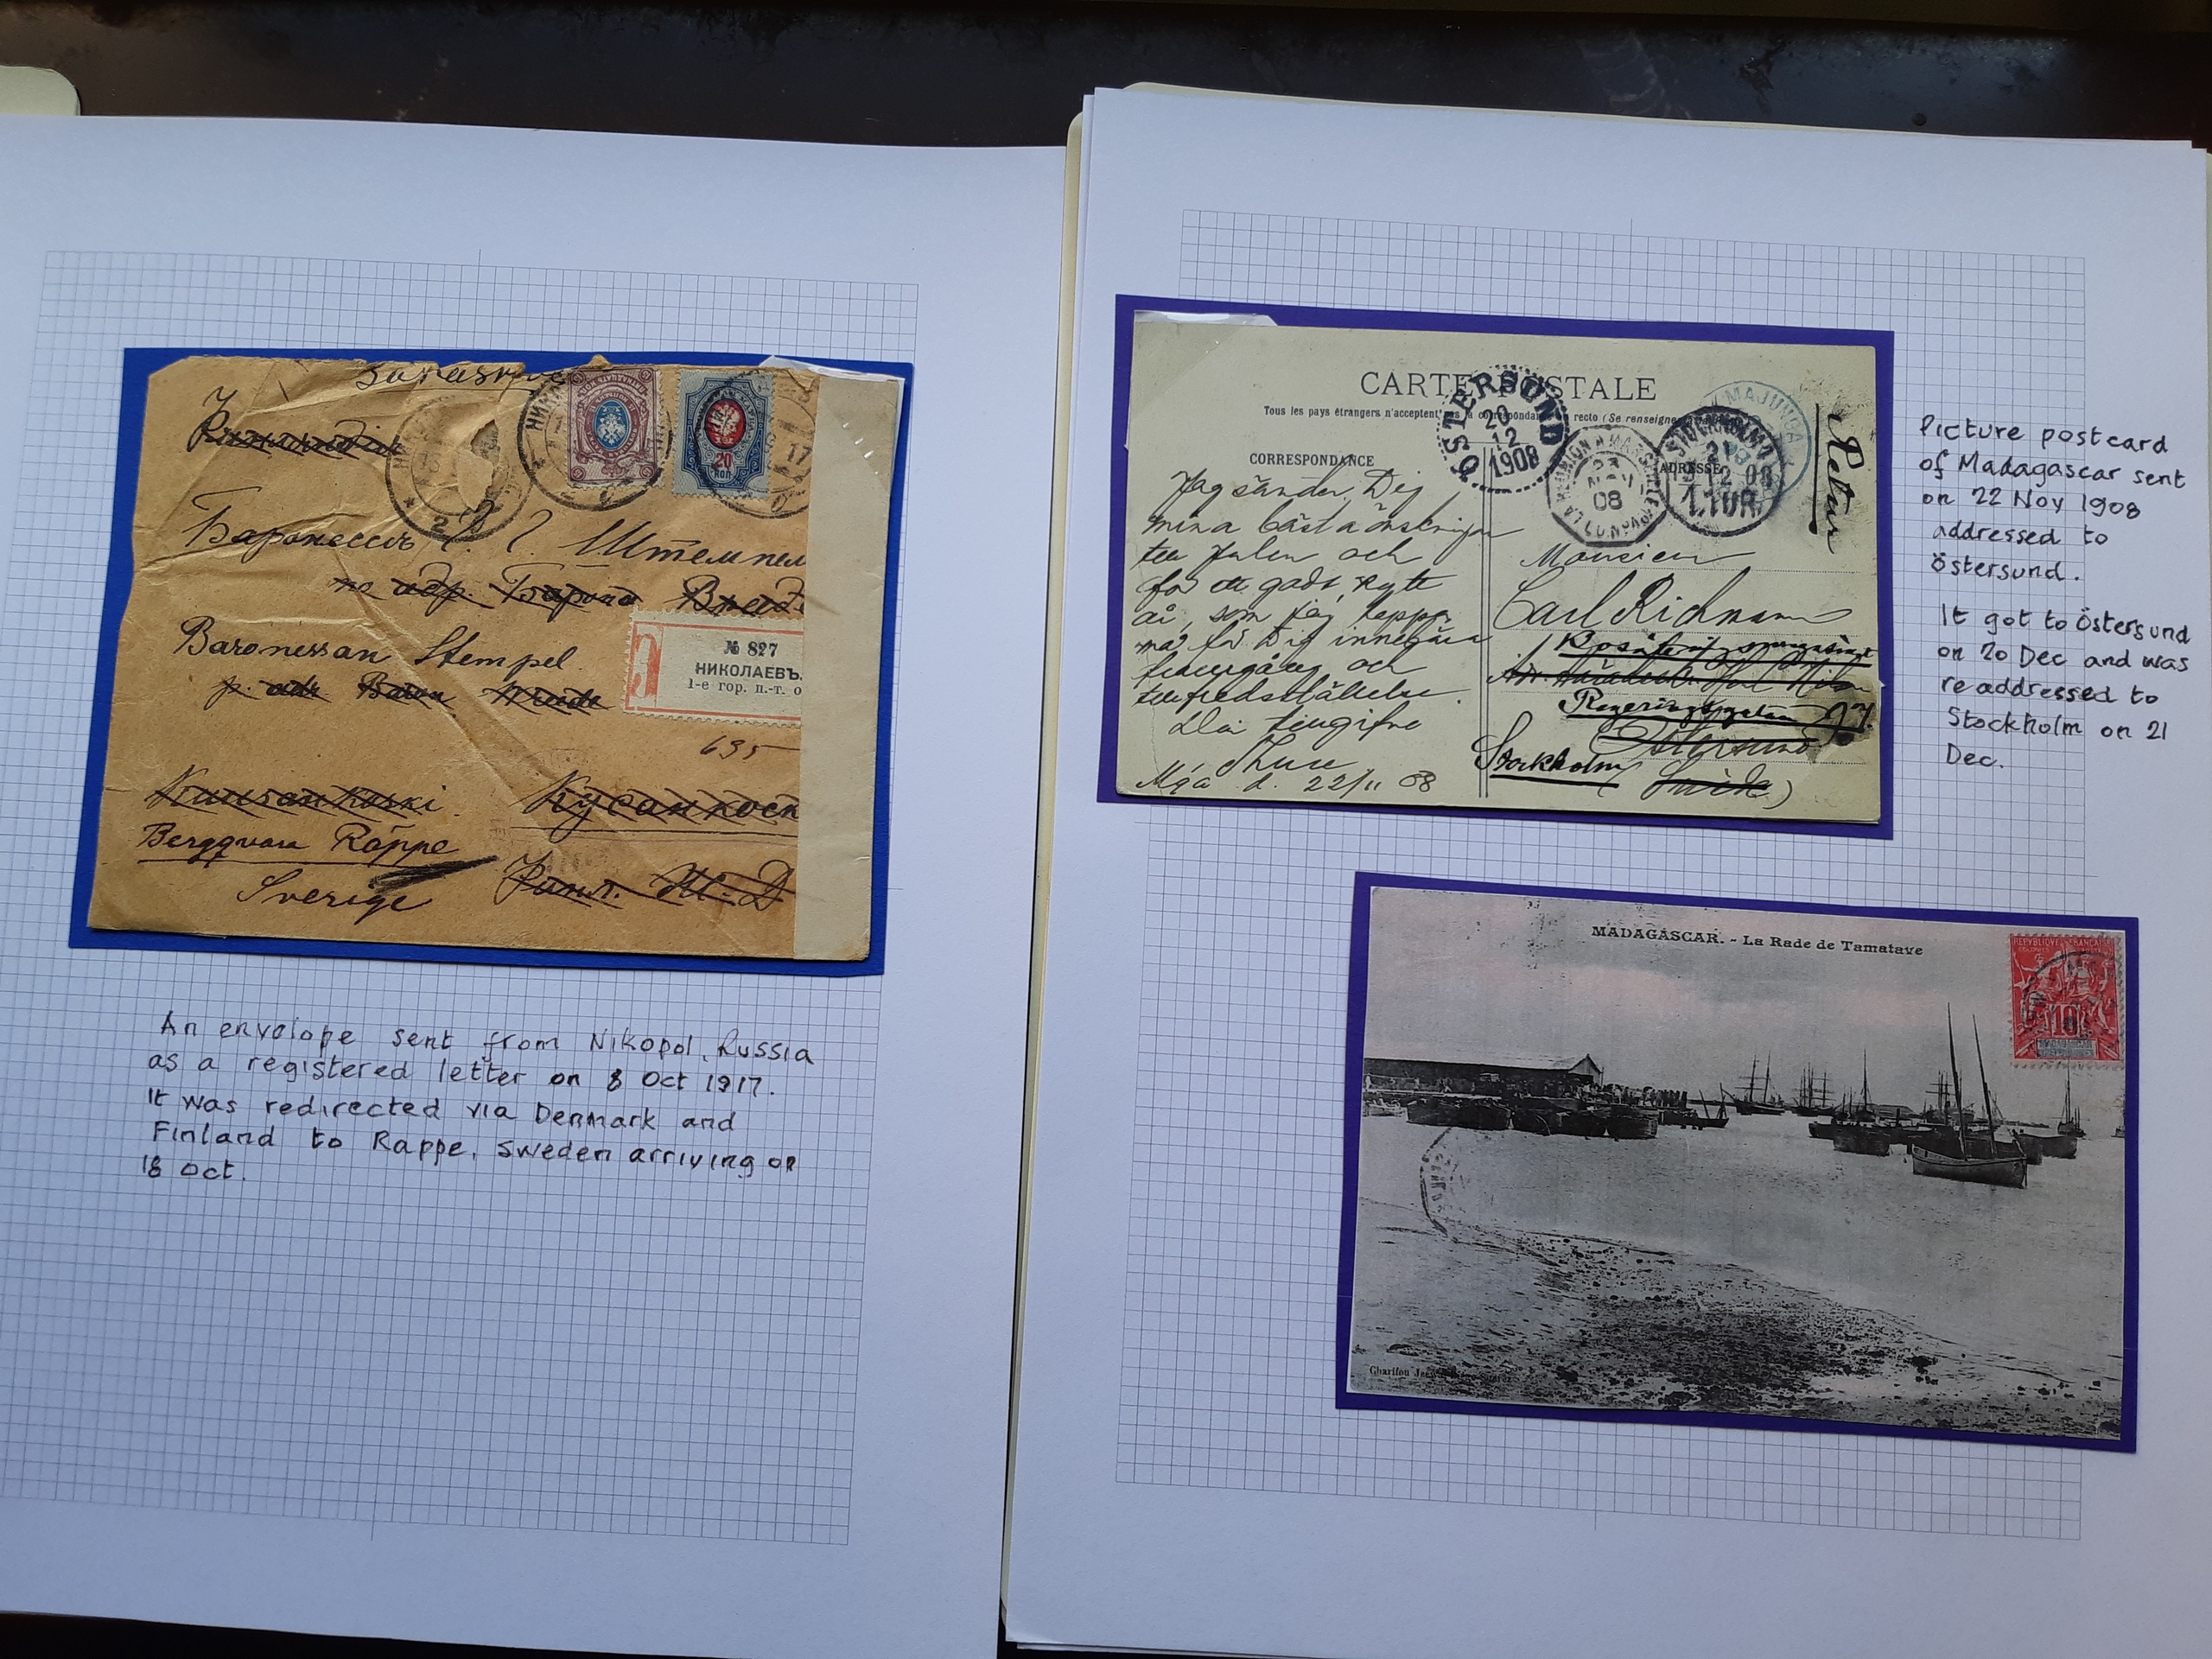 Заказное
Баронессѣ
Штемпел
по адр. Барона
Baronessan Stempel
p. adr Baron Wrede
№ 827
НИКОЛАЕВЪ.
1-е гор. п.-т. о
635
20
КОП
17
Kuusankoski
Кусанкоск
Bergqvara Räppe
Sverige
Финл.
An envelope sent from Nikopol, Russia
as a registered letter on 8 Oct 1917.
It was redirected via Denmark and
Finland to Rappe, Sweden arriving on
18 Oct.
CARTE POSTALE
Tous les pays étrangers n'acceptent pas la correspondance au recto (Se renseigne
CORRESPONDANCE
ADRESSE
ÖSTERSUND
20
12
1908
LA REUNION A MARSEILLE
23
NOV
08
STOCKHOLM
21
12 08
1.TUR
MAJUNGA
Retur
Jag sänder Dig
mina bästa önskningar
till Julen och
för ett godt nytt
år, som jag hoppas
må för Dig innebära
framgång och
tillfredsställelse
Din tillgifne
Thure
Mga d. 22/11 08
Monsieur
Carl Richman
Regeringsgatan
Östersund
Stockholm (Suède)
Picture postcard
of Madagascar sent
on 22 Nov 1908
addressed to
Östersund.
It got to Östersund
on 20 Dec and was
readdressed to
Stockholm on 21
Dec.
MADAGASCAR. - La Rade de Tamatave
REPUBLIQUE FRANCAISE
10
Charifou